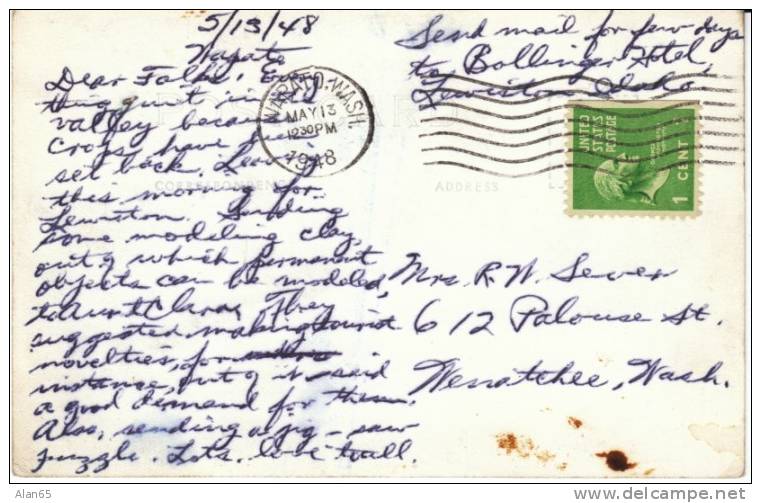 5/13/48
Wapato
Dear Folks, Every
thing quiet in
valley because
crops have been
set back. Leaving
this morning for
Lewiston. Sending
some modeling clay,
out of which permanent
objects can be modeled,
to Aunt Clara. They
suggested making tourist
novelties, for
instance, out of it – said
a good demand for them.
Also, sending a jig-saw
puzzle. Lots love to all.
Send mail for few days
to Bollinger Hotel,
Lewiston Idaho
WAPATO, WASH.
MAY 13
12 30 PM
1948
UNITED
STATES
POSTAGE
1 CENT
CORRESPONDENCE
ADDRESS
Mrs. R. W. Sever
612 Palouse St.
Wenatchee, Wash.
Alan65
http://www.delcampe.net